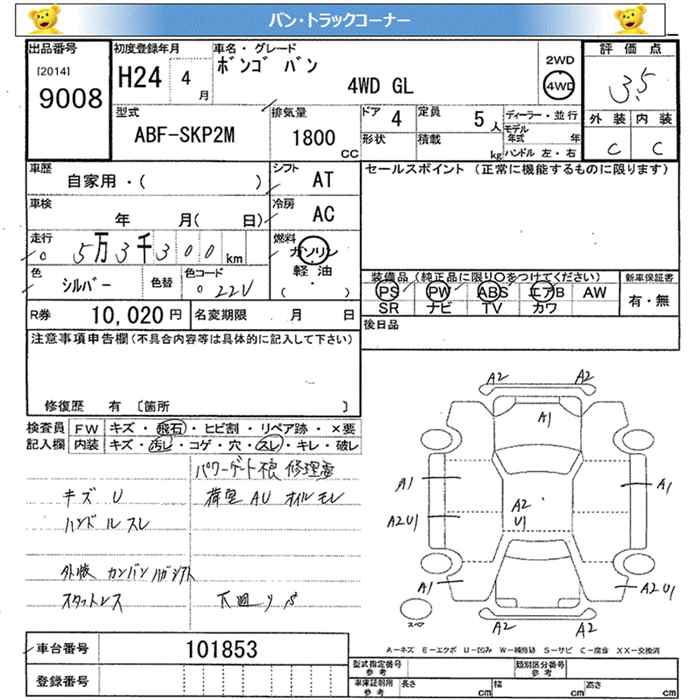 バン・トラックコーナー
出品番号
[2014]
9008
初度登録年月
H24 4
月
車名・グレード
ボンゴ バン
4WD GL
2WD
4WD
評価点
3.5
外装 内装
C C
型式
ABF-SKP2M
排気量
1800
CC
ドア
4
形状
定員
5
人
積載
kg
ディーラー・並行
モデル年式 年
ハンドル 左・右
車歴
自家用・( )
シフト
AT
車検
年 月( 日)
冷房
AC
走行
5万3千300
km
燃料
ガソリン
軽・油
( ・ )
色
シルバー
色替
色コード
22V
R券
10,020 円
名変期限 月 日
セールスポイント (正常に機能するものに限ります)
装備品 (純正品に限り〇をつけてください)
PS PW ABS エアB AW
SR ナビ TV カワ
新車保証書
有・無
後日品
注意事項申告欄(不具合内容等は具体的に記入して下さい)
修復歴 有 〔箇所 〕
検査員
記入欄
FW キズ・飛石・ヒビ割・リペア跡・×要
内装 キズ・汚レ・コゲ・穴・スレ・キレ・破レ
パワーゲート不良 修理要
キズ U
荷室 AU オイルモレ
ハンドルスレ
外板 カンバンハガシアト
スタットレス
下廻り S
A2 A2
A1
A1 A1
A2
U1
A2U1
A1 A2U1
A2 A2
スペ
A-キズ E-エクボ U-凹み W-補修跡 S-サビ C-腐食 XX-交換済
車台番号
101853
登録番号
型式指定番号
参考
類別区分番号
参考
車庫証明用
参考
長さ cm 幅 cm 高さ cm